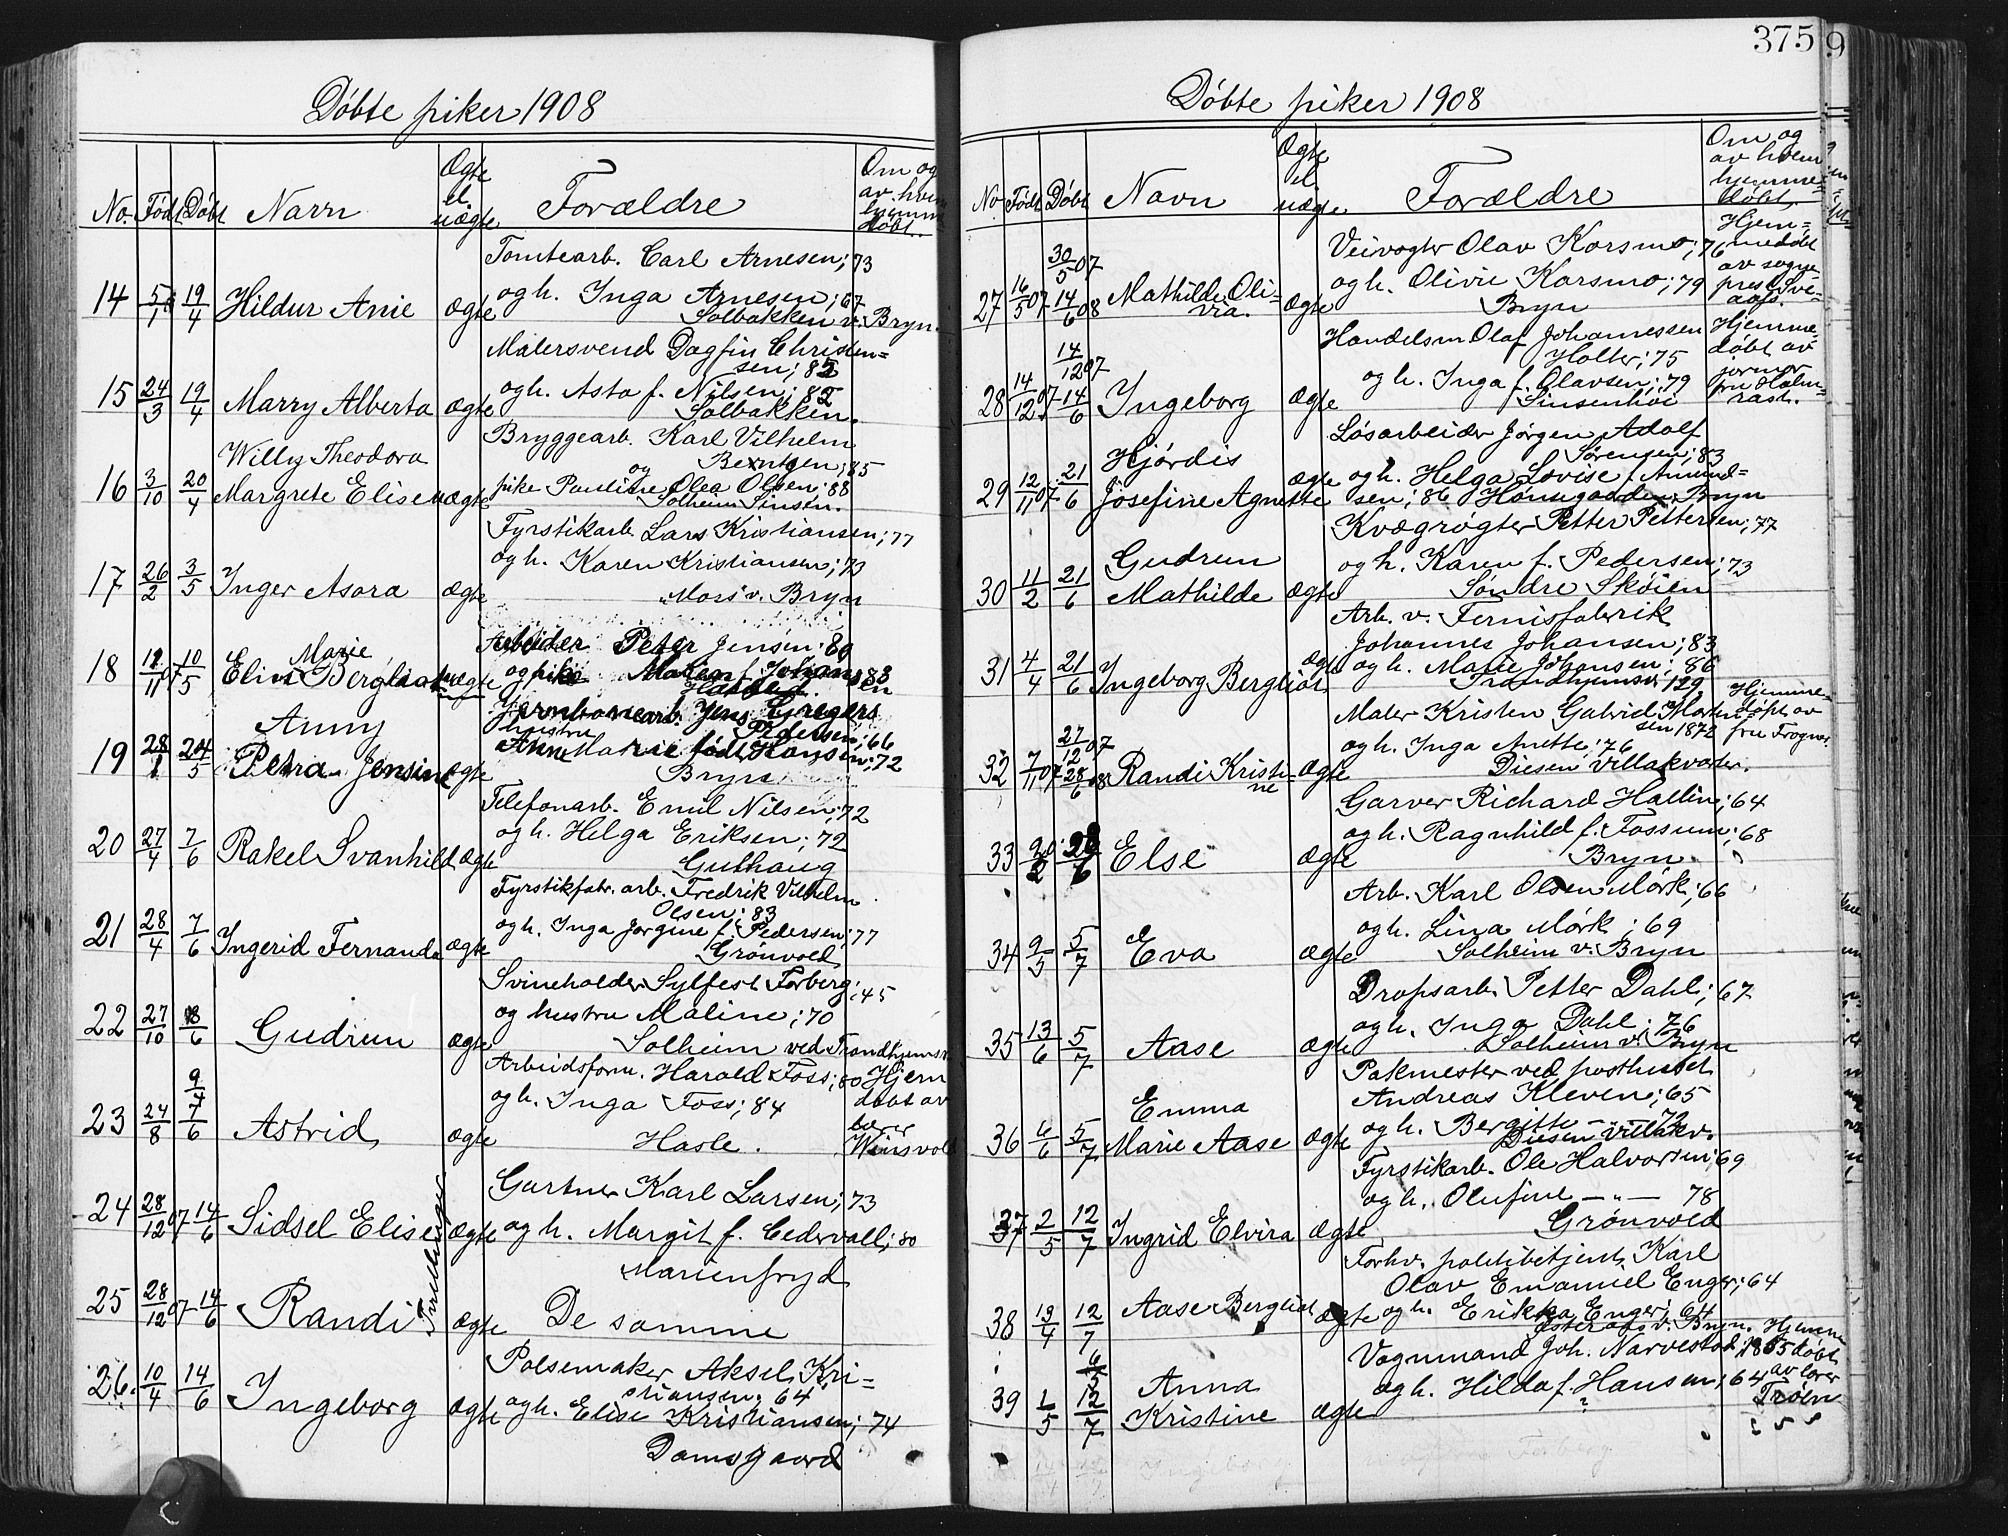 375
Døbte piker 1908
No. Født Døbt Navn Ægte el. uægte Forældre Om og av hvem hjemmedøbt.
Tomtearb. Carl Arnesen; 73
14 5/1 19/4 Hildur Anie Ægte og h. Inga Arnesen; 67
Solbakken v. Bryn.
Malersvend Dagfin Christen=
sen; 85
15 24/3 19/4 Marry Alberta Ægte og h. Asta f. Nilsen; 82
Solbakken.
Willy Theodora Bryggearb. Karl Vilhelm
Berntsen; 85
16 3/10 20/4 Margrete Elise uægte og pike Pauline Olea Olsen; 88
Solheim Sinsen.
Fyrstikarb. Lars Kristiansen; 77
17 26/2 3/5 Inger Asora Ægte og h. Karen Kristiansen; 73
Mors v. Bryn
Arbeider Peter Jensen; 80
18 11/07 10/5 Elin Marie Bergliot uægte og pike f. Johansen 83
Anny Jernbanearb. Jens Gregers
Pedersen; 66
19 28/1 24/5 Petra Jensine Ægte hustru Anne Marie født Hansen; 72
Bryn
Telefonarb. Emil Nilsen; 72
20 27/4 7/6 Rakel Svanhild Ægte og h. Helga Eriksen; 72
Guthaug
Fyrstikfabr. arb. Fredrik Vilhelm
Olsen; 83
21 28/4 7/6 Ingerid Fernanda Ægte og h. Inga Jørgine f. Pedersen; 77
Grønvold
Svineholder Sylfest Forberg; 45
22 27/10 8/6 Gudrun Ægte og hustru Maline; 70
Solheim ved Trondhjemsv.
9/4 Arbeidsform. Harald Foss; 80 Hjem
23 24/8 7/6 Astrid Ægte og h. Inga Foss; 84 døbt av
Hasle. lærer Winsvold
Gartner Karl Larsen; 73
24 28/12 07 14/6 Sidsel Elise Ægte og h. Margit f. Cedervall; 80
Marienfryd
Tvillinger
25 28/12 07 14/6 Randi Ægte De samme
Pølsemaker Aksel Kri=
stiansen; 64
26. 10/4 14/6 Ingeborg Ægte og h. Elise Kristiansen; 74
Damsgaard
Døbte piker 1908
No Født Døbt Navn Ægte el. uægte Forældre Om og av hvem hjemme=døbt.
30/5 07 Veivogter Olav Korsmo; 76 Hjem=
27 16/5 07 14/6 08 Mathilde Oli=via. Ægte og h. Olivie Korsmo; 79 medøbt av sogneprest Sve=aas.
Bryn
14/12 07 Handelsm Olaf Johannessen Hjemme=
Holter; 75 døbt av
28 14/12 07 14/6 Ingeborg Ægte og h. Inga f. Olavsen; 79 jormor fru Halm=rast.
Sinsenhøi
Løsarbeider Jørgen Adolf
Hjørdis Sørensen; 83
29 12/11 07 21/6 Josefine Agnette Ægte og h. Helga Lovise f. Amund=
sen; 86 Hønsegaarden Bryn
Kvægrøgter Petter Pettersen; 77
Gudrun og h. Karen f. Pedersen; 73
30 11/2 21/6 Mathilde Ægte Søndre Skøien
Arb. v. Fernisfabrik
Johannes Johansen; 83
31 4/4 21/6 Ingeborg Bergliot Ægte og h. Marie Johansen; 86
Trondhjemsv 129
Maler Kristen Gabriel Morten Hjemme=
27/12 07 sen 1872 døpt av fru Frogner.
32 7/11 07 28/6 08 Randi Kristi=ne Ægte og h. Inga Anette; 76
Diesen Villakvarter.
Garver Richard Hallin; 64
33 20/2 28/6 Else Ægte og h. Ragnhild f. Fossum; 68
Bryn
Arb. Karl Olsen Mørk; 66
34 9/5 5/7 Eva Ægte og h. Lina Mørk; 69
Solheim v. Bryn
Dropsarb. Petter Dahl; 67
35 13/6 5/7 Aase Ægte og h. Inga Dahl; 76
Solheim v. Bryn
Pakmester ved posthuset
Emma Andreas Kleven; 65
36 6/6 5/7 Marie Aase Ægte og h. Bergitte — 72
Diesen Villakv.
Fyrstikarb. Ole Halvorsen; 69
og h. Olufine — " — 78
37 2/5 12/7 Ingrid Elvira Ægte Grønvold
Forhv. politibetjent Karl
Olav Emanuel Enger; 64
38 19/4 12/7 Aase Bergliot Ægte og h. Erikka Enger; 64
Østeraas v. Bryn.
Vognmand Joh. Narvestad; 1865 Hjemme døbt
Anna og h. Hilda f. Hansen; 64 av lærer Trøen
39 1/5 12/7 Kristine Ægte ?